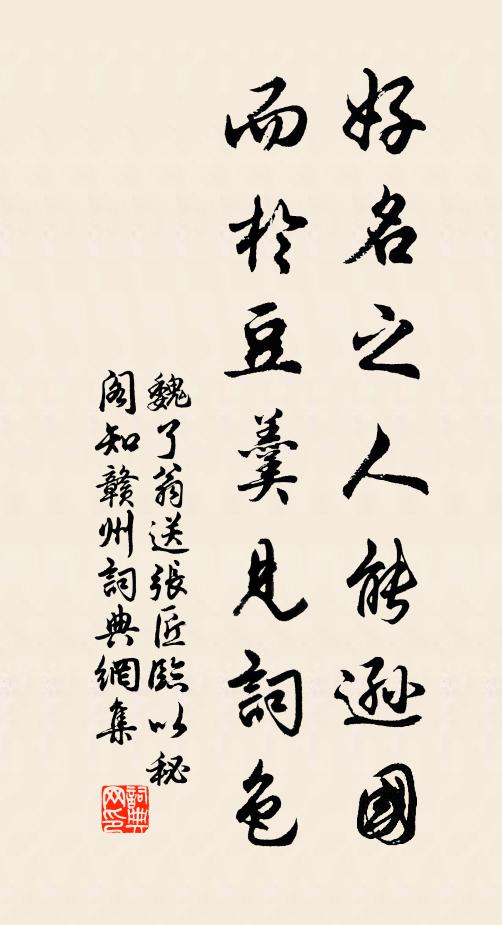 好名之人能遜國
而於豆羹見詞色
魏了翁送張匠臨以秘
閣知贛州詞典網集
詞典
网印